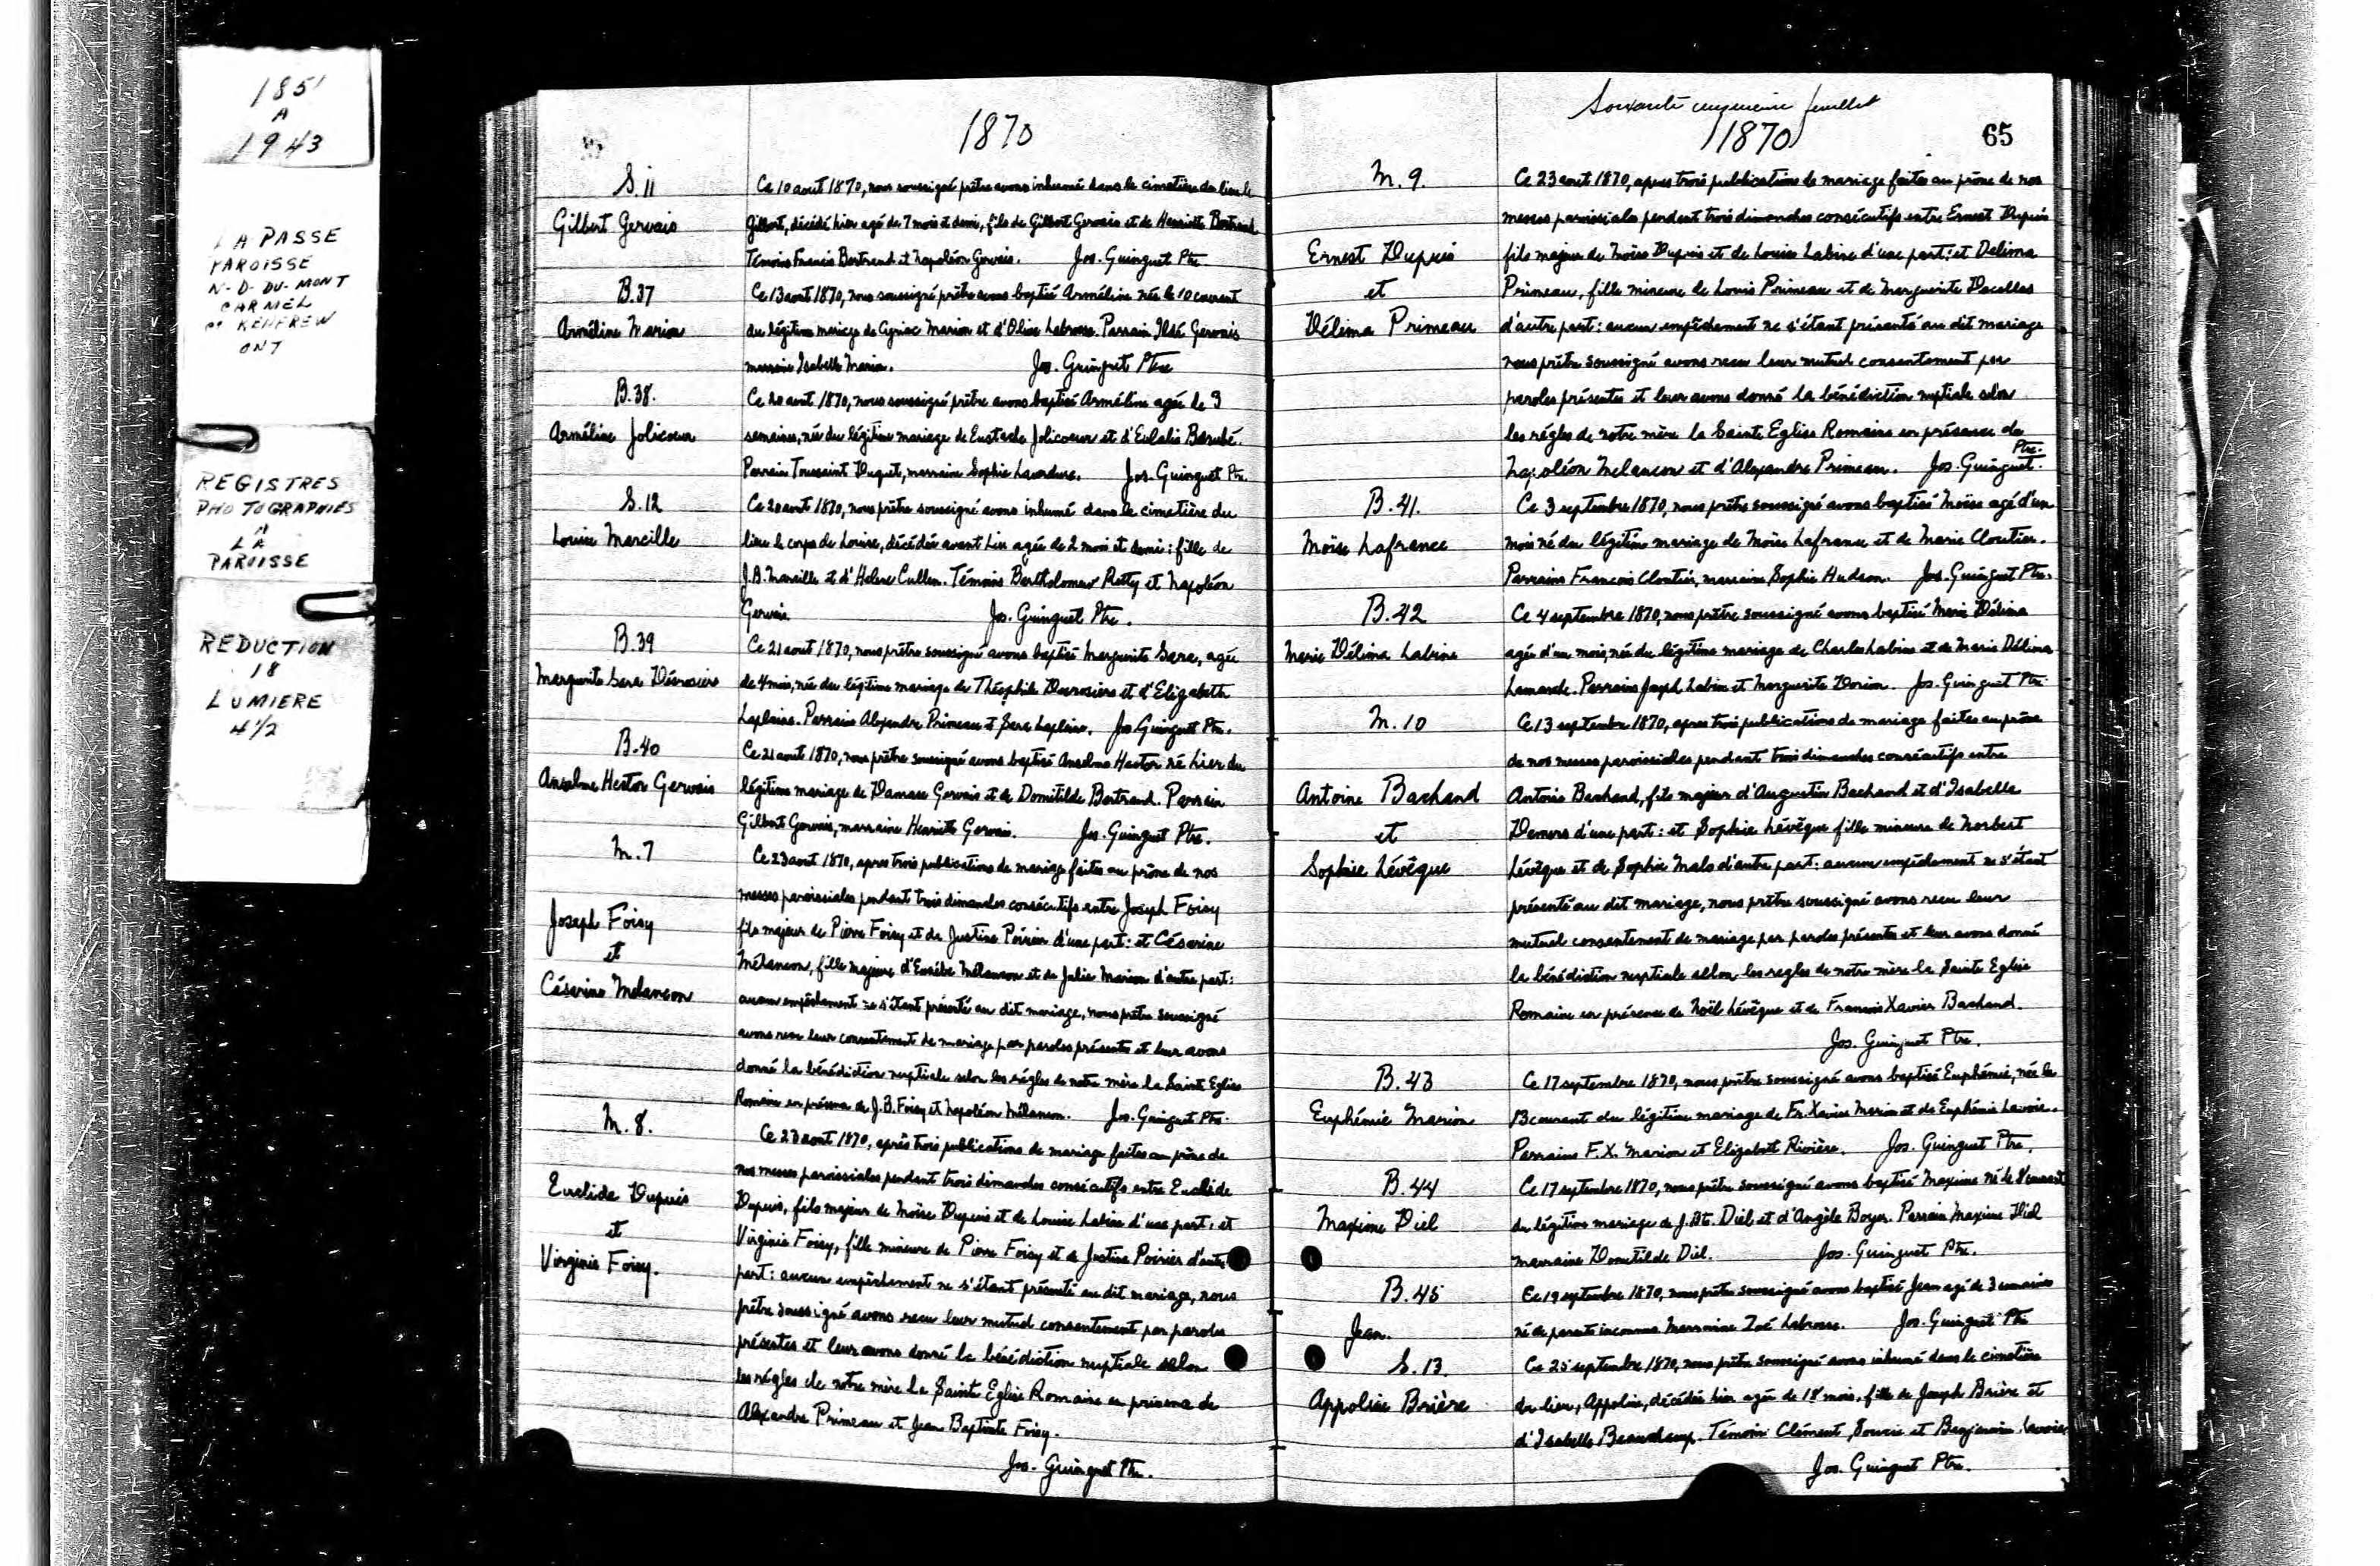 1851
A
1943
LA PASSE
PAROISSE
N-D-DU-MONT
CARMEL
RENFREW
ONT
REGISTRES
PHOTOGRAPHIÉS
A
LA
PAROISSE
REDUCTION
18
LUMIERE
4 1/2
1870
S. 11
Gilbert Gervais
Ce 10 aout 1870, nous soussigné prêtre avons inhumé dans le cimetière du lieu le
Gilbert, décédé hier agé de 7 mois et demi, fils de Gilbert Gervais et de Henriette Bertrand
Témoins Francis Bertrand et Napoléon Gervais. Jos. Guinguet Ptre
B.37
Arméline Marion
Ce 13 aout 1870, nous soussigné prêtre avons baptisé Arméline née le 10 courant
du légitime mariage de Cyriac Marion et d'Olive Labrosse. Parrain Gervais
marraine Isabelle Marion. Jos. Guinguet Ptre
B.38.
Arméline Jolicoeur
Ce 20 aout 1870, nous soussigné prêtre avons baptisé Arméline agée de 3
semaines, née du légitime mariage de Eustache Jolicoeur et d'Eulalie Berubé.
Parrain Toussaint Duquet, marraine Sophie Lacordure. Jos. Guinguet Ptre.
S.12
Louise Marcille
Ce 20 aout 1870, nous prêtre soussigné avons inhumé dans le cimetière du
lieu le corps de Louise, décédée avant hier agée de 2 mois et demi: fille de
J.B. Marcille et d'Helene Cullen. Témoins Bartholomew Retty et Napoléon
Gervais Jos. Guinguet Ptre.
B.39
Marguerite Sara Désrosiers
Ce 21 aout 1870, nous prêtre soussigné avons baptisé Marguerite Sara, agée
de 4 mois, née du légitime mariage de Théophile Desrosiers et d'Elizabeth
Laplaine. Parrains Alexandre Primeau et Sara Laplaine. Jos Guinguet Ptre.
B.40
Anselme Hector Gervais
Ce 21 aout 1870, nous prêtre soussigné avons baptisé Anselme Hector né hier du
légitime mariage de Damase Gervais et de Domitilde Bertrand. Parrain
Gilbert Gervais, marraine Henriette Gervais. Jos. Guinguet Ptre.
M.7
Joseph Foisy
et
Césarine Melancon
Ce 23 aout 1870, apres trois publications de mariage faites au prône de nos
messes paroissiales pendant trois dimanches consécutifs entre Joseph Foisy
fils majeur de Pierre Foisy et de Justine Poirier d'une part: et Césarine
Mélancon, fille majeure d'Eusèbe Mélancon et de Julie Marion d'autre part:
aucun empêchement ne s'étant présenté au dit mariage, nous prêtre soussigné
avons recu leur consentement de mariage par paroles présentes et leur avons
donné la bénédiction nuptiale selon les régles de notre mère la Sainte Eglise
Romaine en présence de J.B. Foisy et Napoléon Mélancon. Jos. Guinguet Ptre.
M.8.
Euclide Dupuis
et
Virginie Foisy.
Ce 23 aout 1870, après trois publications de mariage faites au prône de
nos messes paroissiales pendant trois dimanches consécutifs entre Euclide
Dupuis, fils majeur de Moïse Dupuis et de Louise Labine d'une part, et
Virginie Foisy, fille mineure de Pierre Foisy et de Justine Poirier d'autre
part: aucun empêchement ne s'étant présenté au dit mariage, nous
prêtre soussigné avons recu leur mutuel consentement par paroles
présentes et leur avons donné la bénédiction nuptiale selon
les régles de notre mère la Sainte Eglise Romaine en présence de
Alexandre Primeau et Jean Baptiste Foisy.
Jos. Guinguet Ptre.
Soixante cinquieme feuillet
1870
65
M. 9.
Ernest Dupuis
et
Délima Primeau
Ce 23 aout 1870, apres trois publications de mariage faites au prône de nos
messes paroissiales pendant trois dimanches consécutifs entre Ernest Dupuis
fils majeur de Moïse Dupuis et de Louise Labine d'une part: et Delima
Primeau, fille mineure de Louis Primeau et de Marguerite Decelles
d'autre part: aucun empêchement ne s'étant présenté au dit mariage
nous prêtre soussigné avons recu leur mutuel consentement par
paroles présentes et leur avons donné la bénédiction nuptiale selon
les régles de notre mère la Sainte Eglise Romaine en présence de
Napoléon Melancon et d'Alexandre Primeau. Jos. Guinguet Ptre.
B.41.
Moïse Lafrance
Ce 3 septembre 1870, nous prêtre soussigné avons baptisé Moïse agé d'un
mois né du légitime mariage de Moïse Lafrance et de Marie Cloutier.
Parrain Francois Cloutier, marraine Sophie Hudson. Jos. Guinguet Ptre.
B.42
Marie Délima Labine
Ce 4 septembre 1870, nous prêtre soussigné avons baptisé Marie Délima
agée d'un mois, née du légitime mariage de Charles Labine et de Marie Délima
Lamarche. Parrains Joseph Labine et Marguerite Dorion. Jos. Guinguet Ptre
M.10
Antoine Bachand
et
Sophie Lévêque
Ce 13 septembre 1870, apres trois publications de mariage faites au prône
de nos messes paroissiales pendant trois dimanches consécutifs entre
Antoine Bachand, fils majeur d'Augustin Bachand et d'Isabelle
Demers d'une part: et Sophie Lévêque fille mineure de Norbert
Lévêque et de Sophie Malo d'autre part: aucun empêchement ne s'étant
présenté au dit mariage, nous prêtre soussigné avons recu leur
mutuel consentement de mariage par paroles présentes et leur avons donné
la bénédiction nuptiale selon les regles de notre mère la Sainte Eglise
Romaine en présence de Noël Lévêque et de Francois Xavier Bachand.
Jos. Guinguet Ptre.
B.43
Euphémie Marion
Ce 17 septembre 1870, nous prêtre soussigné avons baptisé Euphémie, née le
13 courant du légitime mariage de Fr. Xavier Marion et de Euphémie Lavoie.
Parrains F.X. Marion et Elizabeth Rivière. Jos. Guinguet Ptre.
B.44
Maxime Diel
Ce 17 septembre 1870, nous prêtre soussigné avons baptisé Maxime né le 8 courant
du légitime mariage de J. Bte. Diel et d'Angèle Boyer. Parrain Maxime Diel
marraine Domitilde Diel. Jos. Guinguet Ptre.
B.45
Jean.
Ce 19 septembre 1870, nous prêtre soussigné avons baptisé Jean agé de 3 semaines
né de parents inconnus Marraine Zoé Labrosse. Jos. Guinguet Ptre
S.13.
Appoline Brière
Ce 25 septembre 1870, nous prêtre soussigné avons inhumé dans le cimetière
du lieu, Appoline, décédée hier agée de 18 mois, fille de Joseph Brière et
d'Isabelle Beauchamp. Témoins Clément Soucie et Benjamin Lavoie.
Jos. Guinguet Ptre.